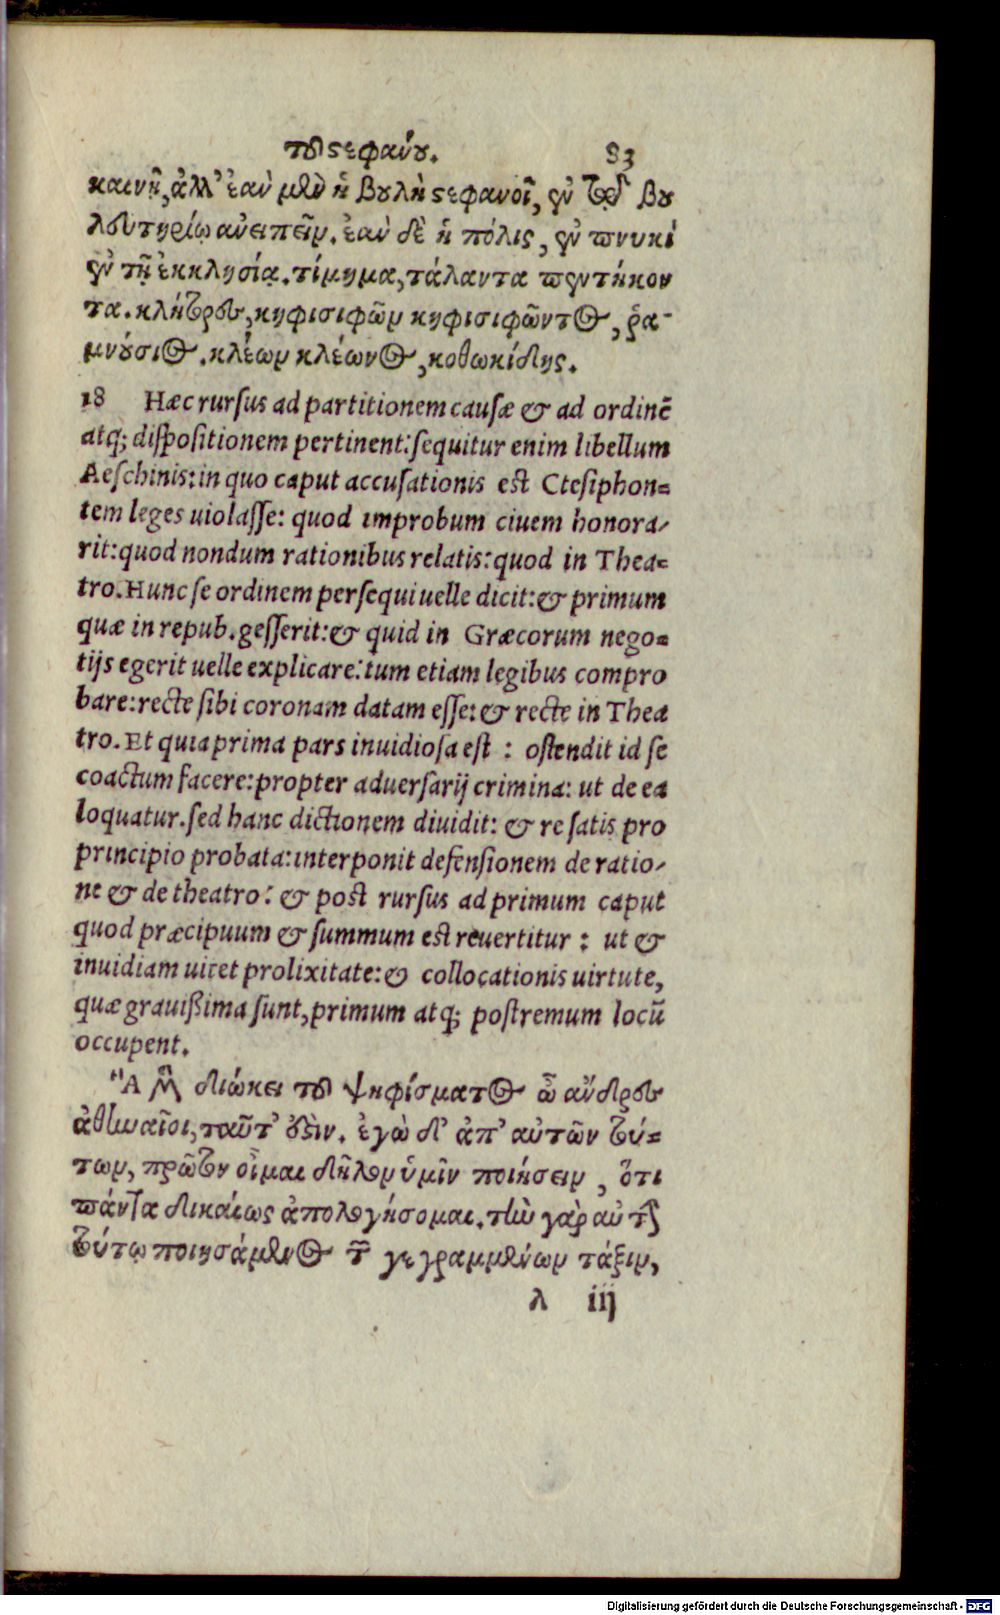 τοῦ στεφάνου. 83
καινῇ, ἀλλ' ἐὰν μὲν ἡ βουλὴ στεφανοῖ, ἐν τῷ βου
λευτηρίῳ ἀνειπεῖν. ἐὰν δὲ ἡ πόλις, ἐν πνυκὶ
ἐν τῇ ἐκκλησίᾳ. τίμημα, τάλαντα πεντήκον
τα. κλήτορες, κηφισιφῶν κηφισιφῶντος, ῥα-
μνούσιος. κλέων κλέωνος, κοθωκίδης.
18 Hæc rursus ad partitionem causæ & ad ordinẽ
atq; dispositionem pertinent: sequitur enim libellum
Aeschinis: in quo caput accusationis est Ctesiphon=
tem leges uiolasse: quod improbum ciuem honora-
rit: quod nondum rationibus relatis: quod in Thea=
tro. Hunc se ordinem persequi uelle dicit: & primum
quæ in repub. gesserit: & quid in Græcorum nego=
tijs egerit uelle explicare: tum etiam legibus compro
bare: recte sibi coronam datam esse: & recte in Thea
tro. Et quia prima pars inuidiosa est : ostendit id se
coactum facere: propter aduersarij crimina: ut de ea
loquatur. sed hanc dictionem diuidit: & re satis pro
principio probata: interponit defensionem de ratio-
ne & de theatro: & post rursus ad primum caput
quod præcipuum & summum est reuertitur : ut &
inuidiam uitet prolixitate: & collocationis uirtute,
quæ grauißima sunt, primum atq; postremum locũ
occupent.
Ἃ μὲν διώκει τοῦ ψηφίσματος ὦ ἄνδρες
ἀθηναῖοι, ταῦτ' ἐστίν. ἐγὼ δ' ἀπ' αὐτῶν τού=
των, πρῶτον οἶμαι δῆλον ὑμῖν ποιήσειν, ὅτι
πάντα δικαίως ἀπολογήσομαι. τὴν γὰρ αὐτὴν
τούτῳ ποιησάμενος τῶν γεγραμμένων τάξιν,
λ iij
Digitalisierung gefördert durch die Deutsche Forschungsgemeinschaft - DFG